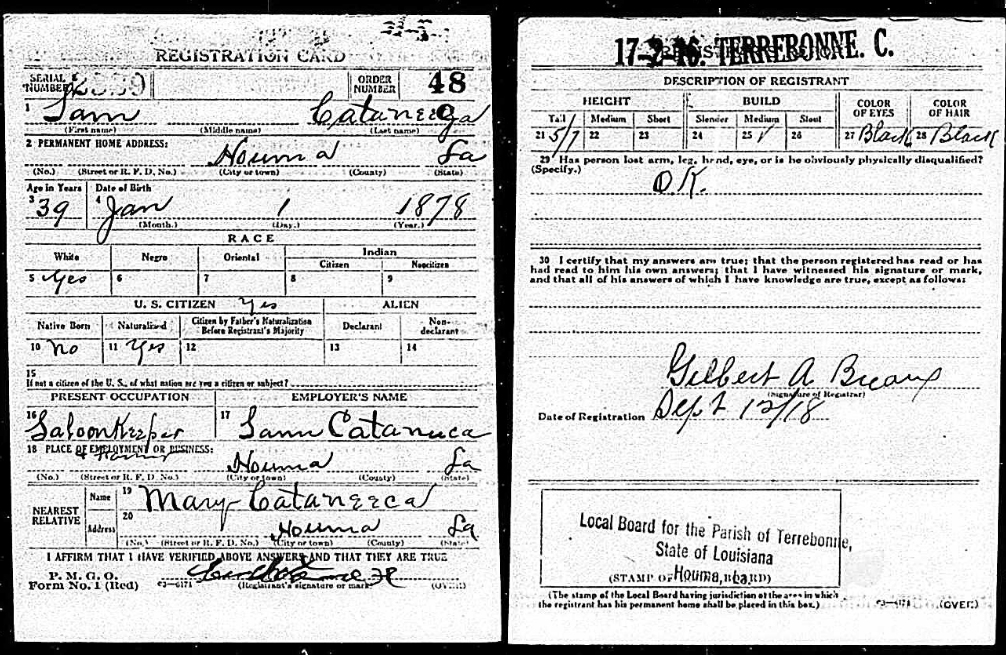 REGISTRATION CARD
SERIAL NUMBER
ORDER NUMBER 48
1 Sam
(First name) (Middle name) (Last name)
2 PERMANENT HOME ADDRESS:
Houma La
(No.) (Street or R. F. D. No.) (City or town) (County) (State)
Age in Years Date of Birth
3 39 4 Jan 1 1878
(Month.) (Day.) (Year.)
RACE
White Negro Oriental Indian
Citizen Noncitizen
5 Yes 6 7 8 9
U. S. CITIZEN Yes ALIEN
Native Born Naturalized Citizen by Father's Naturalization Before Registrant's Majority Declarant Non-declarant
10 No 11 Yes 12 13 14
15
If not a citizen of the U. S., of what nation are you a citizen or subject?
PRESENT OCCUPATION EMPLOYER'S NAME
16 Saloon Keeper 17 Sam Catanuca
18 PLACE OF EMPLOYMENT OR BUSINESS:
Houma La
(No.) (Street or R. F. D. No.) (City or town) (County) (State)
NEAREST RELATIVE
Name 19 Mary Cataneeca
Address 20 Houma La
(No.) (Street or R. F. D. No.) (City or town) (County) (State)
I AFFIRM THAT I HAVE VERIFIED ABOVE ANSWERS AND THAT THEY ARE TRUE
P. M. G. O.
Form No. 1 (Red) 03-6171 (Registrant's signature or mark) (OVER)
17-2-16. TERREBONNE. C.
DESCRIPTION OF REGISTRANT
HEIGHT BUILD COLOR OF EYES COLOR OF HAIR
Tall Medium Short Slender Medium Stout
21 5/7 22 23 24 25 √ 26 27 Black 28 Black
29 Has person lost arm, leg, hand, eye, or is he obviously physically disqualified?
(Specify.)
OK.
30 I certify that my answers are true; that the person registered has read or has
had read to him his own answers; that I have witnessed his signature or mark,
and that all of his answers of which I have knowledge are true, except as follows:
Gilbert A Breaux
(Signature of Registrar)
Date of Registration Sept 12/18
Local Board for the Parish of Terrebonne,
State of Louisiana
Houma, La.
(STAMP OF LOCAL BOARD)
(The stamp of the Local Board having jurisdiction of the area in which
the registrant has his permanent home shall be placed in this box.) 03-6171 (OVER)